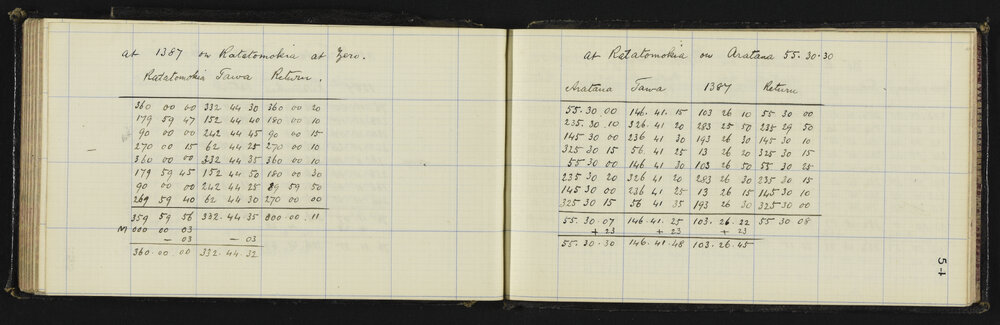 at 1387 on Ratatomokia at Zero.
Ratatomokia Tawa Return.
360 00 00 332 44 30 360 00 20
179 59 47 152 44 40 180 00 10
90 00 00 242 44 45 90 00 15
270 00 15 62 44 25 270 00 10
360 00 00 332 44 35 360 00 10
179 59 45 152 44 50 180 00 30
90 00 00 242 44 25 89 59 50
269 59 40 62 44 30 270 00 00
359 59 56 332.44.35 000.00.11
M 000 00 03
- 03 - 03
360.00.00 332.44.32
at Ratatomokia on Aratana 55.30.30
Aratana Tawa 1387 Return
55.30.00 146.41.15 103 26 10 55 30 00
235.30.10 326.41 20 283 25 50 235 29 50
145 30 00 236 41 30 193 26 30 145 30 10
325 30 15 56 41 25 13 26 20 325 30 15
55 30 00 146 41 30 103 26 50 55 30 25
235 30 20 326 41 20 283 26 30 235 30 15
145 30 00 236 41 25 13 26 15 145 30 10
325 30 15 56 41 35 193 26 30 325 30 00
55.30.07 146.41.25 103.26.22 55 30 08
+ 23 + 23 + 23
55.30.30 146.41.48 103.26.45
54